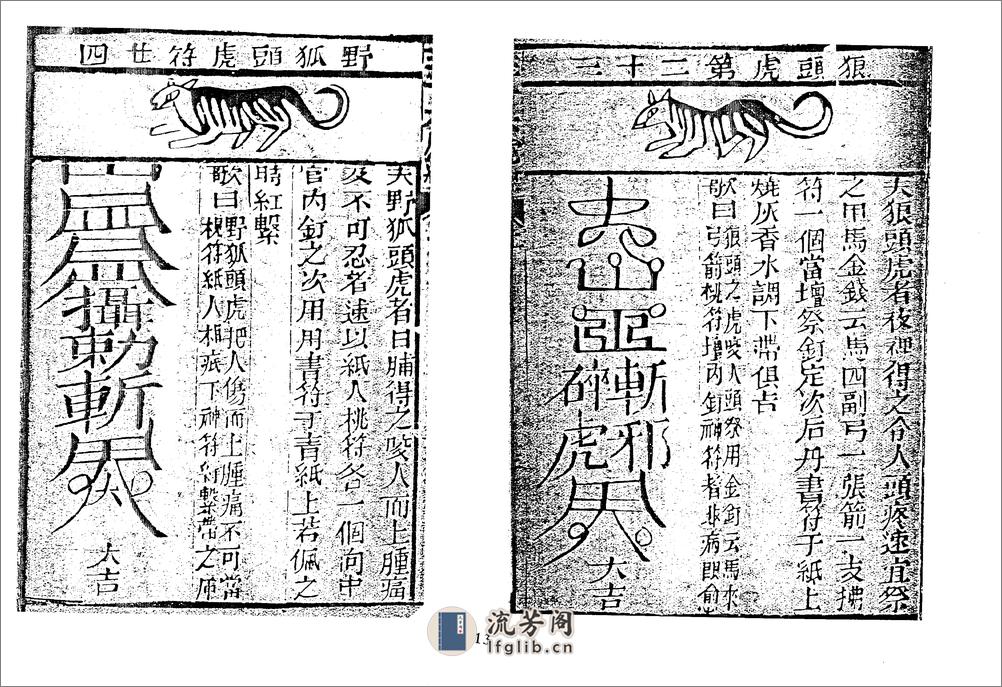 狼頭虎第二十三
夫狼頭虎者夜裡得之令人頭疼速宜祭
之甲馬金錢云馬四副弓一張箭一支拂
符一個當壇祭釘定次后丹書符于紙上
燒灰香水調下帶俱吉
歌曰狼頭之虎咬人頭祭用金釘云馬來
弓箭桃符壇內釘神符
斬邪
碎虎
大吉
野狐頭虎符廿四
夫野狐頭虎者日晡得之咬人而上腫痛
及不可忍者速以紙人桃符各一個向中
宮內釘之次用用書符于青紙上若佩之
時紅繫
歌曰野狐頭虎把人傷而上腫痛不可當
桃符紙人
攝
勅
斬
大吉
13
流芳阁
lfglib.cn